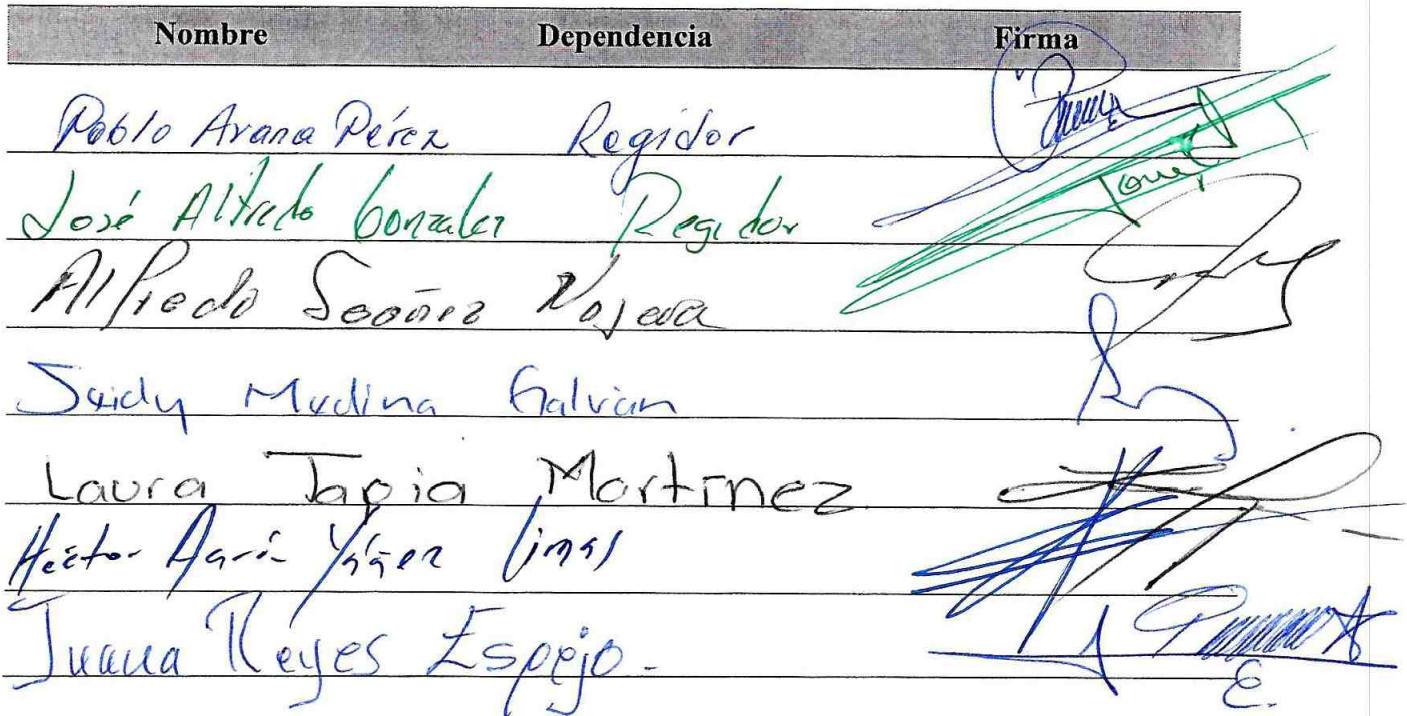 Nombre Dependencia Firma
Pablo Arana Pérez Regidor
José Alfredo Gonzalez Regidor
Alfredo
Saidy Medina Galvan
Laura Tapia Martínez
Hector Yáñez
Juana Reyes Espejo.